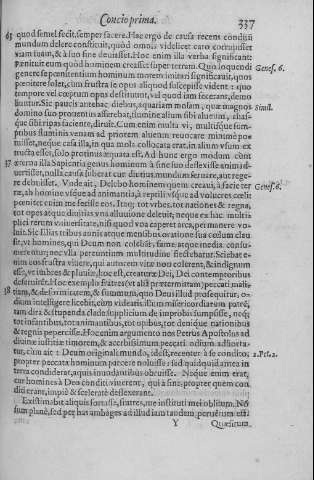 Concio prima.
337
63 quod semel fecit, semper facere. Hac ergo de causa recens conditũ
mundum delere constituit, quòd omnis videlicet caro corrupisset
viam suam, & à suo fine deuiasset. Hoc enim illa verba significant:
pœnituit eum quòd hominem creasset super terram. Quo loquendi
Genes. 6.
genere se pœnitentium hominum morem imitari significauit, quos
pœnitere solet, cùm frustra se opus aliquod suscepisse vident: quo
tempore vel cœptum opus destituunt, vel quod iam fecerant, demo
liuntur. Sic paucis antehac diebus, aquariam molam, quæ magno
Simil.
domino suo prouentus afferebat, flumine alium sibi alueum,
que sibi ripas faciente, diruit. Cum enim multa vi, multisque sum-
ptibus fluminis venam ad priorem alueum reuocare minimè po
tuisset, neque casa illa, in qua mola collocata erat, in alium vsum ex
37 æterna illa Sapientia genus hominum à fine suo deflexisse animad
uertisset, nulla causa suberat cur diutius mundum seruare, aut rege-
re debuisset. Vnde ait, Delebo hominem quem creaui, à facie ter
Genes. 6.
ræ, ab homine vsque ad animantia, à reptili vsque ad volucres cœli:
pœnitet enim me fecisse eos. Itaq; tot vrbes, tot nationes & regna,
tot opes atque diuitias vna alluuione deleuit, neque ex hac multi
plici rerum vniuersitate, nisi quod vna caperet arca, permanere vo-
luit. Sic filias tribus annis atque mensibus, oratione sua cœlum clau
sit, vt homines, qui Deum non colebāt, fame atque inedia consu-
meret, nec vlla pereuntium multitudine flectebatur. Sciebat e-
nim eos frustra viuere, qui autorem vitæ non colerent, & indignum
esse, vt imbres & pluuiæ, hoc est, creaturæ Dei, Dei contemptoribus
deseruirēt. Hoc exemplo fratres (vt alia prætermittam) peccati, mali-
38 tiam, & deformitatem, & summum, quo Deus illud prosequitur, o-
dium intelligere licebit, cùm videatis illum misericordiarum patrē,
tam dira & stupenda clade supplicium de improbis sumpsisse, neq;
tot infantibus, tot animantibus, tot opibus, tot denique nationibus
& regnis pepercisse. Hoc enim argumento nos Petrus Apostolus ad
diuinæ iustitiæ timorem, & acerbissimum peccati odium adhorta-
tur, cùm ait: Deum originali mundo, id est, recenter à se condito,
2. Pet. 2.
propter peccata hominum parcere noluisse: sed quidquid animæ in
terra condiderat, aquis inundantibus obruisse. Neque enim erat,
cur homines à Deo conditi viuerent, qui à fine, propter quem con
diti erant, impiè & scelerate deflexerant.
Existimabit aliquis fortasse, fratres, me instituti mei oblitum. Nō
sum planè, sed per has ambages ad illud iam tandem peruentũ est:
Y
Quæsitum.